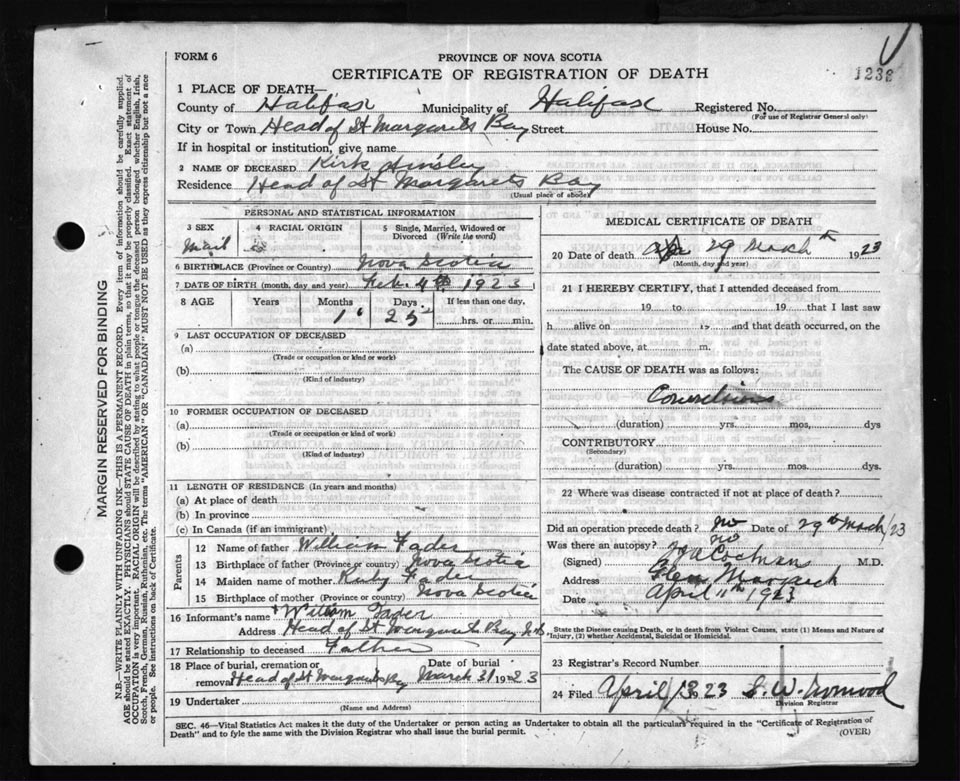 FORM 6
PROVINCE OF NOVA SCOTIA
CERTIFICATE OF REGISTRATION OF DEATH
1238
1 PLACE OF DEATH—
County of Halifax Municipality of Halifax Registered No.
(For use of Registrar General only)
City or Town Head of St Margarets Bay Street House No.
If in hospital or institution, give name
2 NAME OF DECEASED Kirk Ainsley
Residence Head of St Margarets Bay
(Usual place of abode)
PERSONAL AND STATISTICAL INFORMATION
3 SEX 4 RACIAL ORIGIN 5 Single, Married, Widowed or Divorced (Write the word)
Mail S
6 BIRTHPLACE (Province or Country) Nova Scotia
7 DATE OF BIRTH (month, day and year) Feb 4th 1923
8 AGE Years Months Days If less than one day,
1 25 hrs. or min.
9 LAST OCCUPATION OF DECEASED
(a)
(Trade or occupation or kind or work)
(b)
(Kind of industry)
10 FORMER OCCUPATION OF DECEASED
(a)
(Trade or occupation or kind of work)
(b)
(Kind of industry)
11 LENGTH OF RESIDENCE (In years and months)
(a) At place of death
(b) In province
(c) In Canada (if an immigrant)
Parents
12 Name of father William Fader
13 Birthplace of father (Province or country) Nova Scotia
14 Maiden name of mother Ruby Fader
15 Birthplace of mother (Province or country) Nova Scotia
16 Informant's name William Fader
Address Head of St Margarets Bay NS
17 Relationship to deceased Father
18 Place of burial, cremation or removal Head of St Margarets Bay Date of burial March 31 1923
19 Undertaker
(Name and Address)
MEDICAL CERTIFICATE OF DEATH
20 Date of death 29 March 1923
(Month, day and year)
21 I HEREBY CERTIFY, that I attended deceased from
19 to 19 that I last saw
h alive on 19 and that death occurred, on the
date stated above, at m.
The CAUSE OF DEATH was as follows:
Convulsions
(duration) yrs. mos. dys
CONTRIBUTORY
(Secondary)
(duration) yrs. mos. dys.
22 Where was disease contracted if not at place of death?
Did an operation precede death? no Date of 29th March/23
Was there an autopsy? no
(Signed) Cochrans M.D.
Address Glen Margaret
Date April 11th 1923
State the Disease causing Death, or in death from Violent Causes, state (1) Means and Nature of Injury, (2) whether Accidental, Suicidal or Homicidal.
23 Registrar's Record Number
24 Filed April 13 1923 S. W. Norwood
Division Registrar
SEC. 46—Vital Statistics Act makes it the duty of the Undertaker or person acting as Undertaker to obtain all the particulars required in the "Certificate of Registration of
Death" and to fyle the same with the Division Registrar who shall issue the burial permit. (OVER)
MARGIN RESERVED FOR BINDING
N.B.—WRITE PLAINLY WITH UNFADING INK—THIS IS A PERMANENT RECORD. Every item of information should be carefully supplied.
AGE should be stated EXACTLY. PHYSICIANS should STATE CAUSE OF DEATH in plain terms, so that it may be properly classified. Exact statement of
OCCUPATION is very important. RACIAL ORIGIN will be described by stating to what people or tongue the deceased person belonged whether English, Irish,
Scotch, French, German, Russian, Ruthenian, etc. The terms "AMERICAN" OR "CANADIAN" MUST NOT BE USED as they express citizenship but not a race
or people. See instructions on back of Certificate.